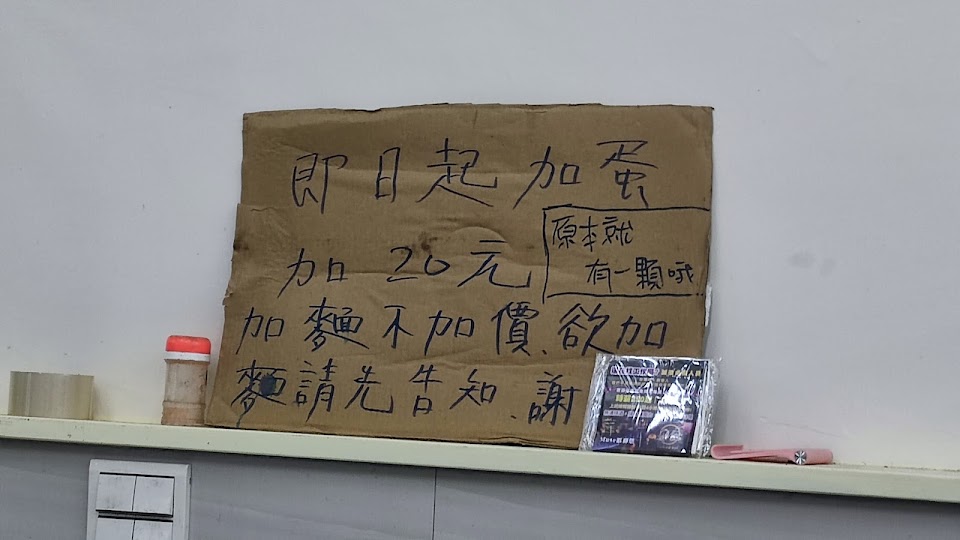 即日起 加蛋
加 20元
原本就
有一顆哦
加麵不加價、欲加
麵請先告知、謝